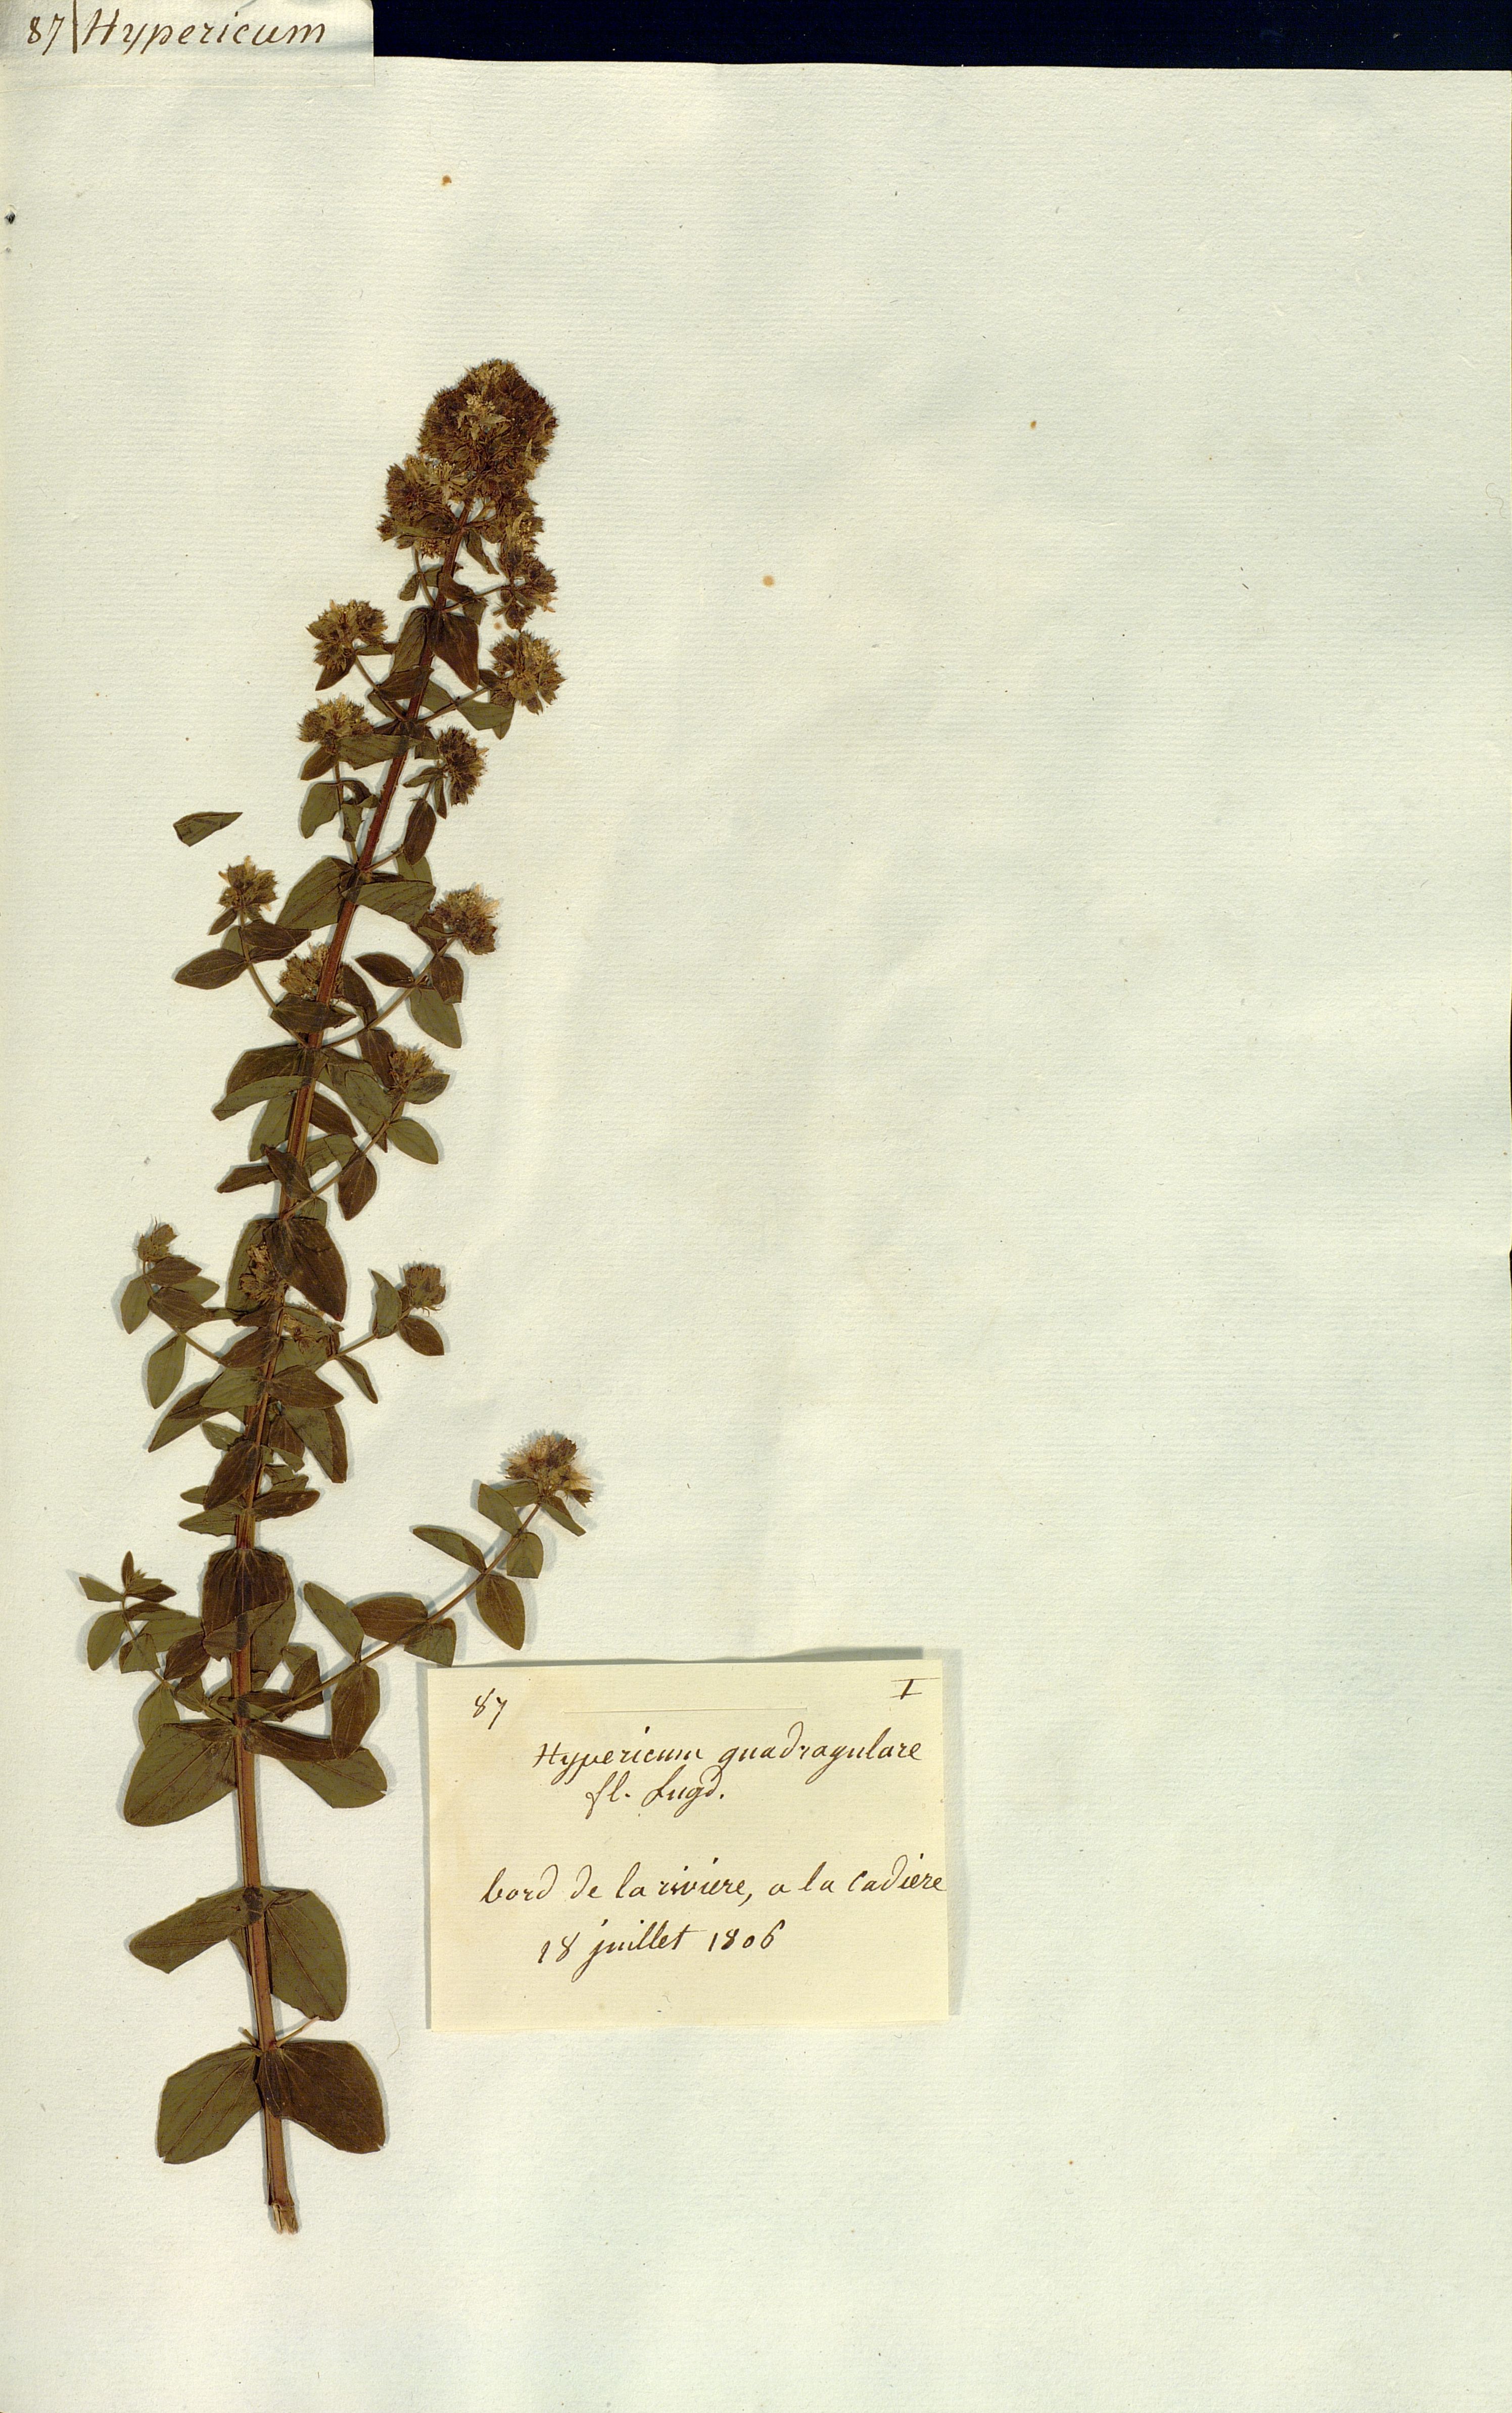 87 Hypericum
87 I
Hypericum quadragulare
fl. Lugd.
bord de la riviere, a la Cadiere
18 juillet 1806